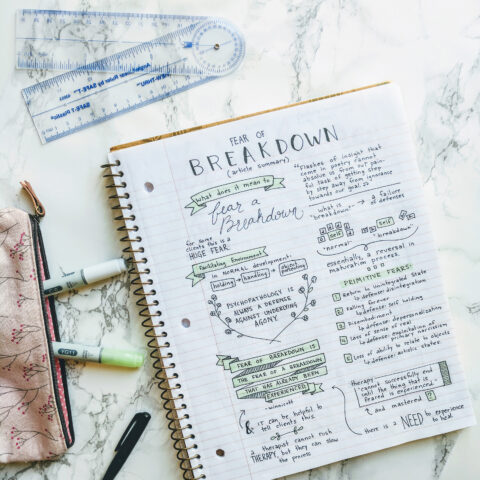 FEAR OF
BREAKDOWN
(article summary)
what does it mean to
fear a
Breakdown
for some
clients this is a
HUGE FEAR.
Facilitating Environment
in NORMAL development:
holding → handling → object-presenting
PSYCHOPATHOLOGY IS
ALWAYS A DEFENSE
AGAINST UNDERLYING
AGONY.
FEAR OF BREAKDOWN IS
THE FEAR OF A BREAKDOWN
THAT HAS ALREADY BEEN
EXPERIENCED
- winnicott
& it can be helpful to
tell clients this.
a therapist cannot rush
THERAPY, but they can slow
the process
"Flashes of insight that
come in poetry cannot
absolve us from our pain-
ful task of getting step
by step away from ignorance
towards our goal."
what is "breakdown"? → a failure of defenses
self
self
"normal"
"breakdown"
essentially, a reversal in
maturation process.
PRIMITIVE FEARS:
1 Return to unintegrated state
↳ defense: disintegration
2 Falling forever
↳ defense: self holding
3
↳ defense: depersonalization
4 Loss of sense of real
↳ defense: exploitation of
primary narcissism
5 Loss of ability to relate to objects
↳ defense: autistic states
therapy is a successful end
until the thing that is
feared is experienced
and mastered?
there is a NEED to experience
to heal.
SAFE-T
YG11